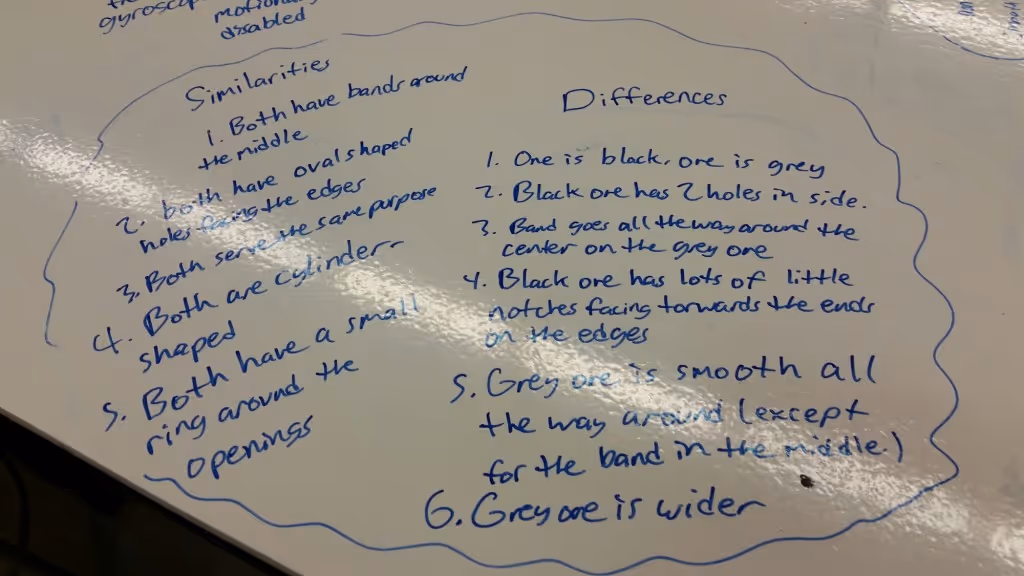 gyroscop
motion
disabled
Similarities
1. Both have bands around
the middle
2. both have oval shaped
holes facing the edges
3. Both serve the same purpose
4. Both are cylinder-
shaped
5. Both have a small
ring around the
openings
Differences
1. One is black, one is grey
2. Black one has 2 holes in side.
3. Band goes all the way around the
center on the grey one
4. Black one has lots of little
notches facing torwards the ends
on the edges
5. Grey one is smooth all
the way around (except
for the band in the middle.)
6. Grey one is wider